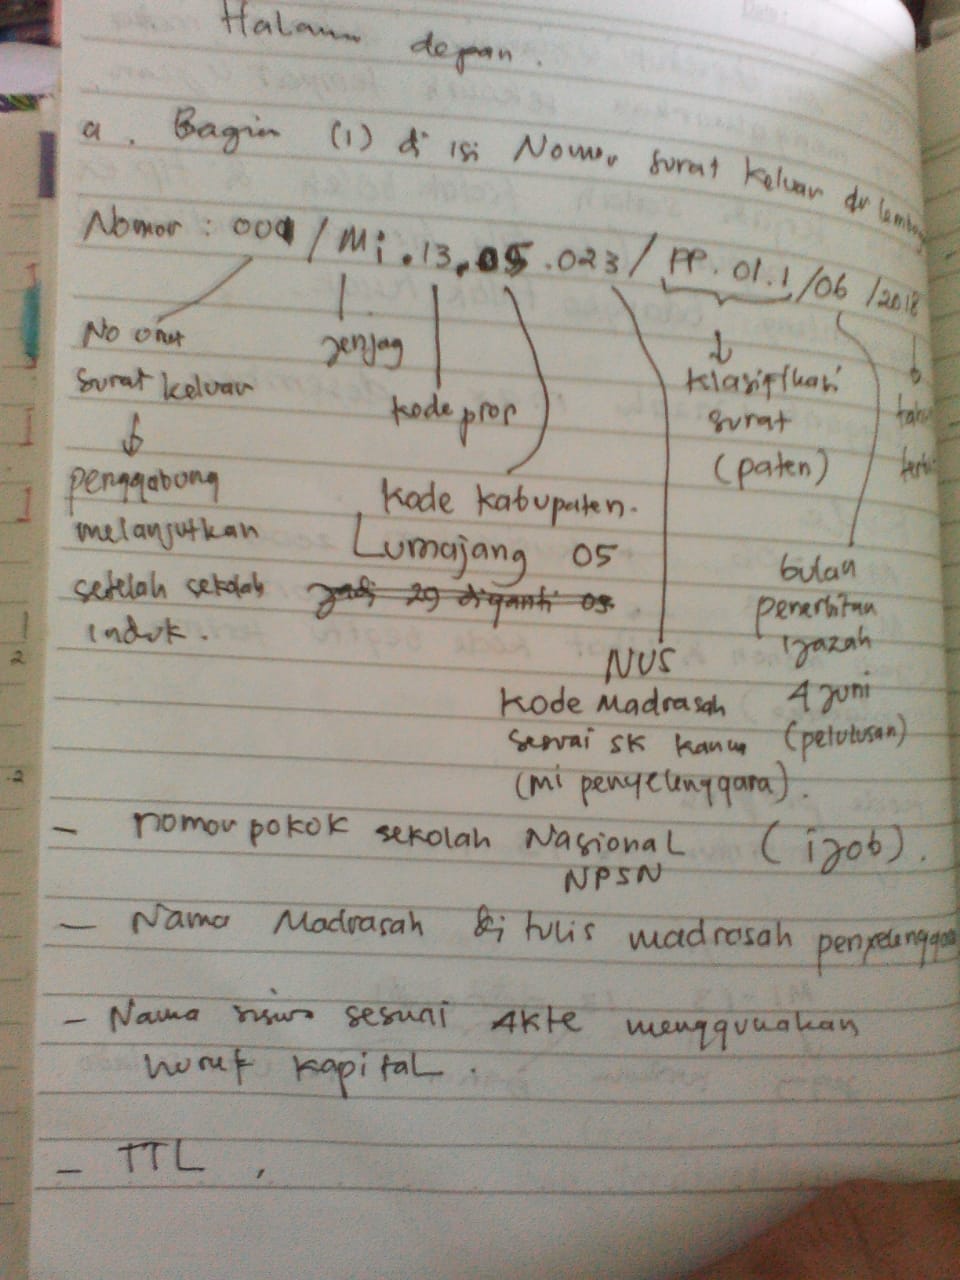 Halaman depan.
a. Bagian (1) di isi Nomor surat keluar dr lembaga
Nomor : 001 / Mi.13.05.023 / PP.01.1/06 /2018
No urut
surat keluar
↓
penggabung
melanjutkan
setelah sekolah
induk.
jenjag
kode prop
kode kabupaten.
Lumajang 05
jadi 29 diganti 05
NUS
kode Madrasah
sesuai SK kanw
(mi penyelenggara).
↓
klasifikasi
surat
(paten)
bulan
penerbitan
ijazah
4 juni
(pelulusan)
↓
tahun
terbit
- nomor pokok sekolah Nasional (ijob).
NPSN
- Nama Madrasah di tulis madrasah penyelenggara
- Nama siswa sesuai Akte menggunakan
huruf kapital.
- TTL ,